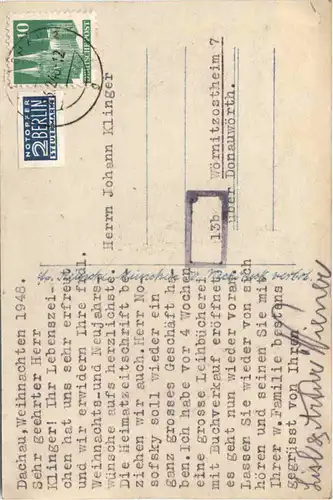 Dachau, Weihnachten 1948.
Sehr geehrter Herr
Klinger! Ihr Lebenszei-
chen hat uns sehr erfreut
und wir erwidern Ihre frdl.
Weihnachts-und Neujahrs-
wünsche aufs herzlichste.
Die Heimatzeitschrift be-
ziehen wir auch. Herr No-
sofsky soll wieder ein
ganz grosses Geschäft ha-
ben. Ich habe vor 4 Wochen
eine grosse Leihbücherei
mit Buchverkauf eröffnet
es geht nun wieder vorm.
Lassen Sie wieder von sich
hören und seinen Sie mit
Ihrer w. Familie bestens
gegrüsst von Ihren
Herrn Johann Klinger
13b Wörnitzostheim 7
über Donauwörth.
10
DEUTSCHE POST
NOTOPFER
2 BERLIN
STEUERMARKE